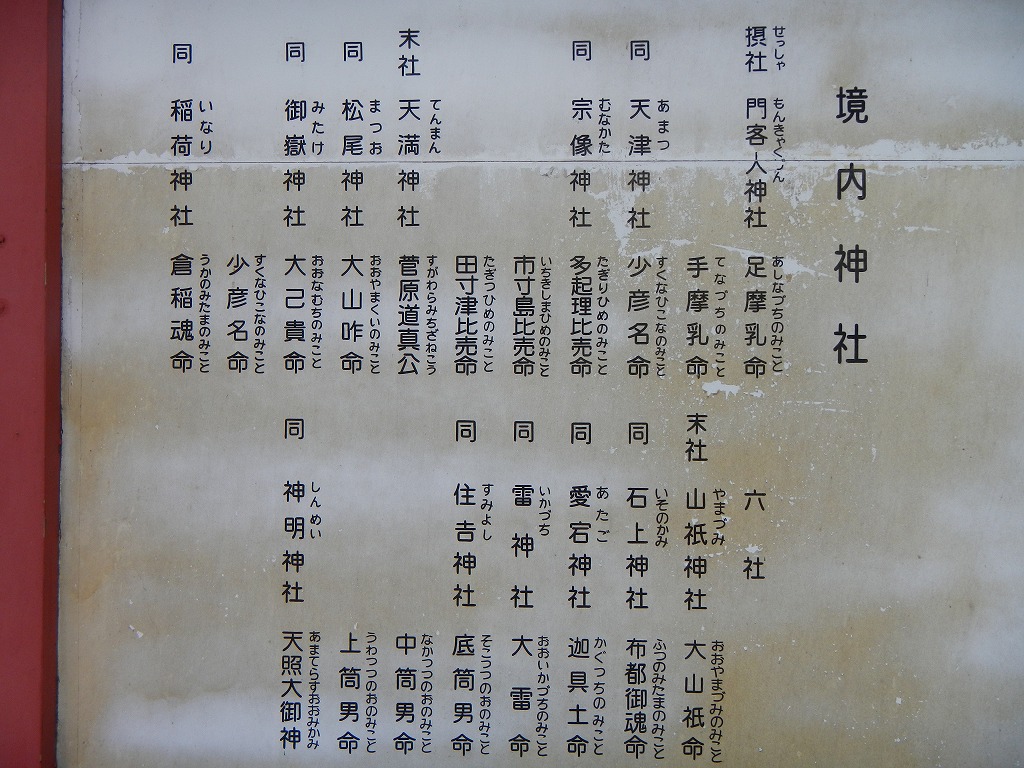 境内神社
せっしゃ もんきゃくじん あしなづちのみこと
摂社 門客人神社 足摩乳命
てなづちのみこと
手摩乳命
あまつ すくなひこなのみこと
同 天津神社 少彦名命
むなかた たぎりひめのみこと
同 宗像神社 多起理比売命
いちきしまひめのみこと
市寸島比売命
たぎつひめのみこと
田寸津比売命
てんまん すがわらみちざねこう
末社 天満神社 菅原道真公
まつお おおやまくいのみこと
同 松尾神社 大山咋命
みたけ おおなむちのみこと
同 御嶽神社 大己貴命
すくなひこなのみこと
少彦名命
いなり うかのみたまのみこと
同 稲荷神社 倉稲魂命
六社
やまづみ おおやまづみのみこと
末社 山祇神社 大山祇命
いそのかみ ふつのみたまのみこと
同 石上神社 布都御魂命
あたご かぐつちのみこと
同 愛宕神社 迦具土命
いかづち おおいかづちのみこと
同 雷神社 大雷命
すみよし そこつつのおのみこと
同 住吉神社 底筒男命
なかつつのおのみこと
中筒男命
うわつつのおのみこと
上筒男命
しんめい あまてらすおおみかみ
同 神明神社 天照大御神